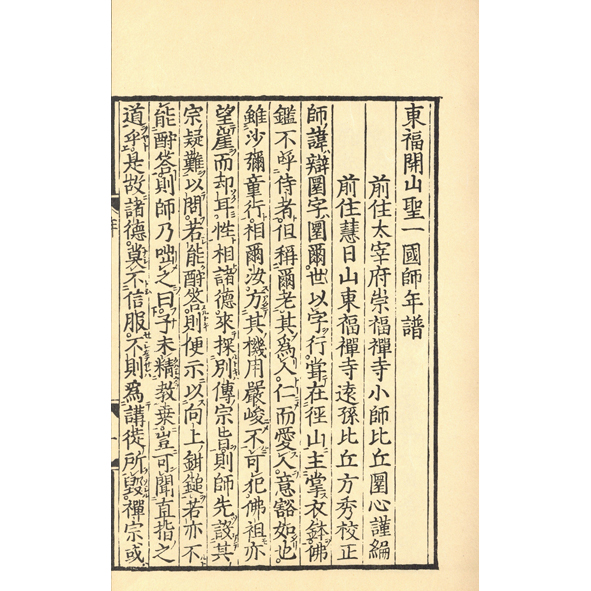 東福開山聖一國師年譜
前住太宰府崇福禪寺小師比丘圓心謹編
前住慧日山東福禪寺遠孫比丘方秀校正
師諱辯圓字圓爾世以字行嘗在徑山主掌衣鉢佛
鑑不呼侍者但稱爾老其為人仁而愛人意豁如也
雖沙彌童行相爾汝方其機用嚴峻不可犯佛祖亦
望崖而却耳性相諸德來探別傳宗旨則師先設其
宗疑難以問若能酧答則便示以向上鉗鎚若亦不
能酧答則師乃咄之曰子未精教乗豈可聞直指之
道乎是故諸德莫不信服不則為講徒所毀禪宗或